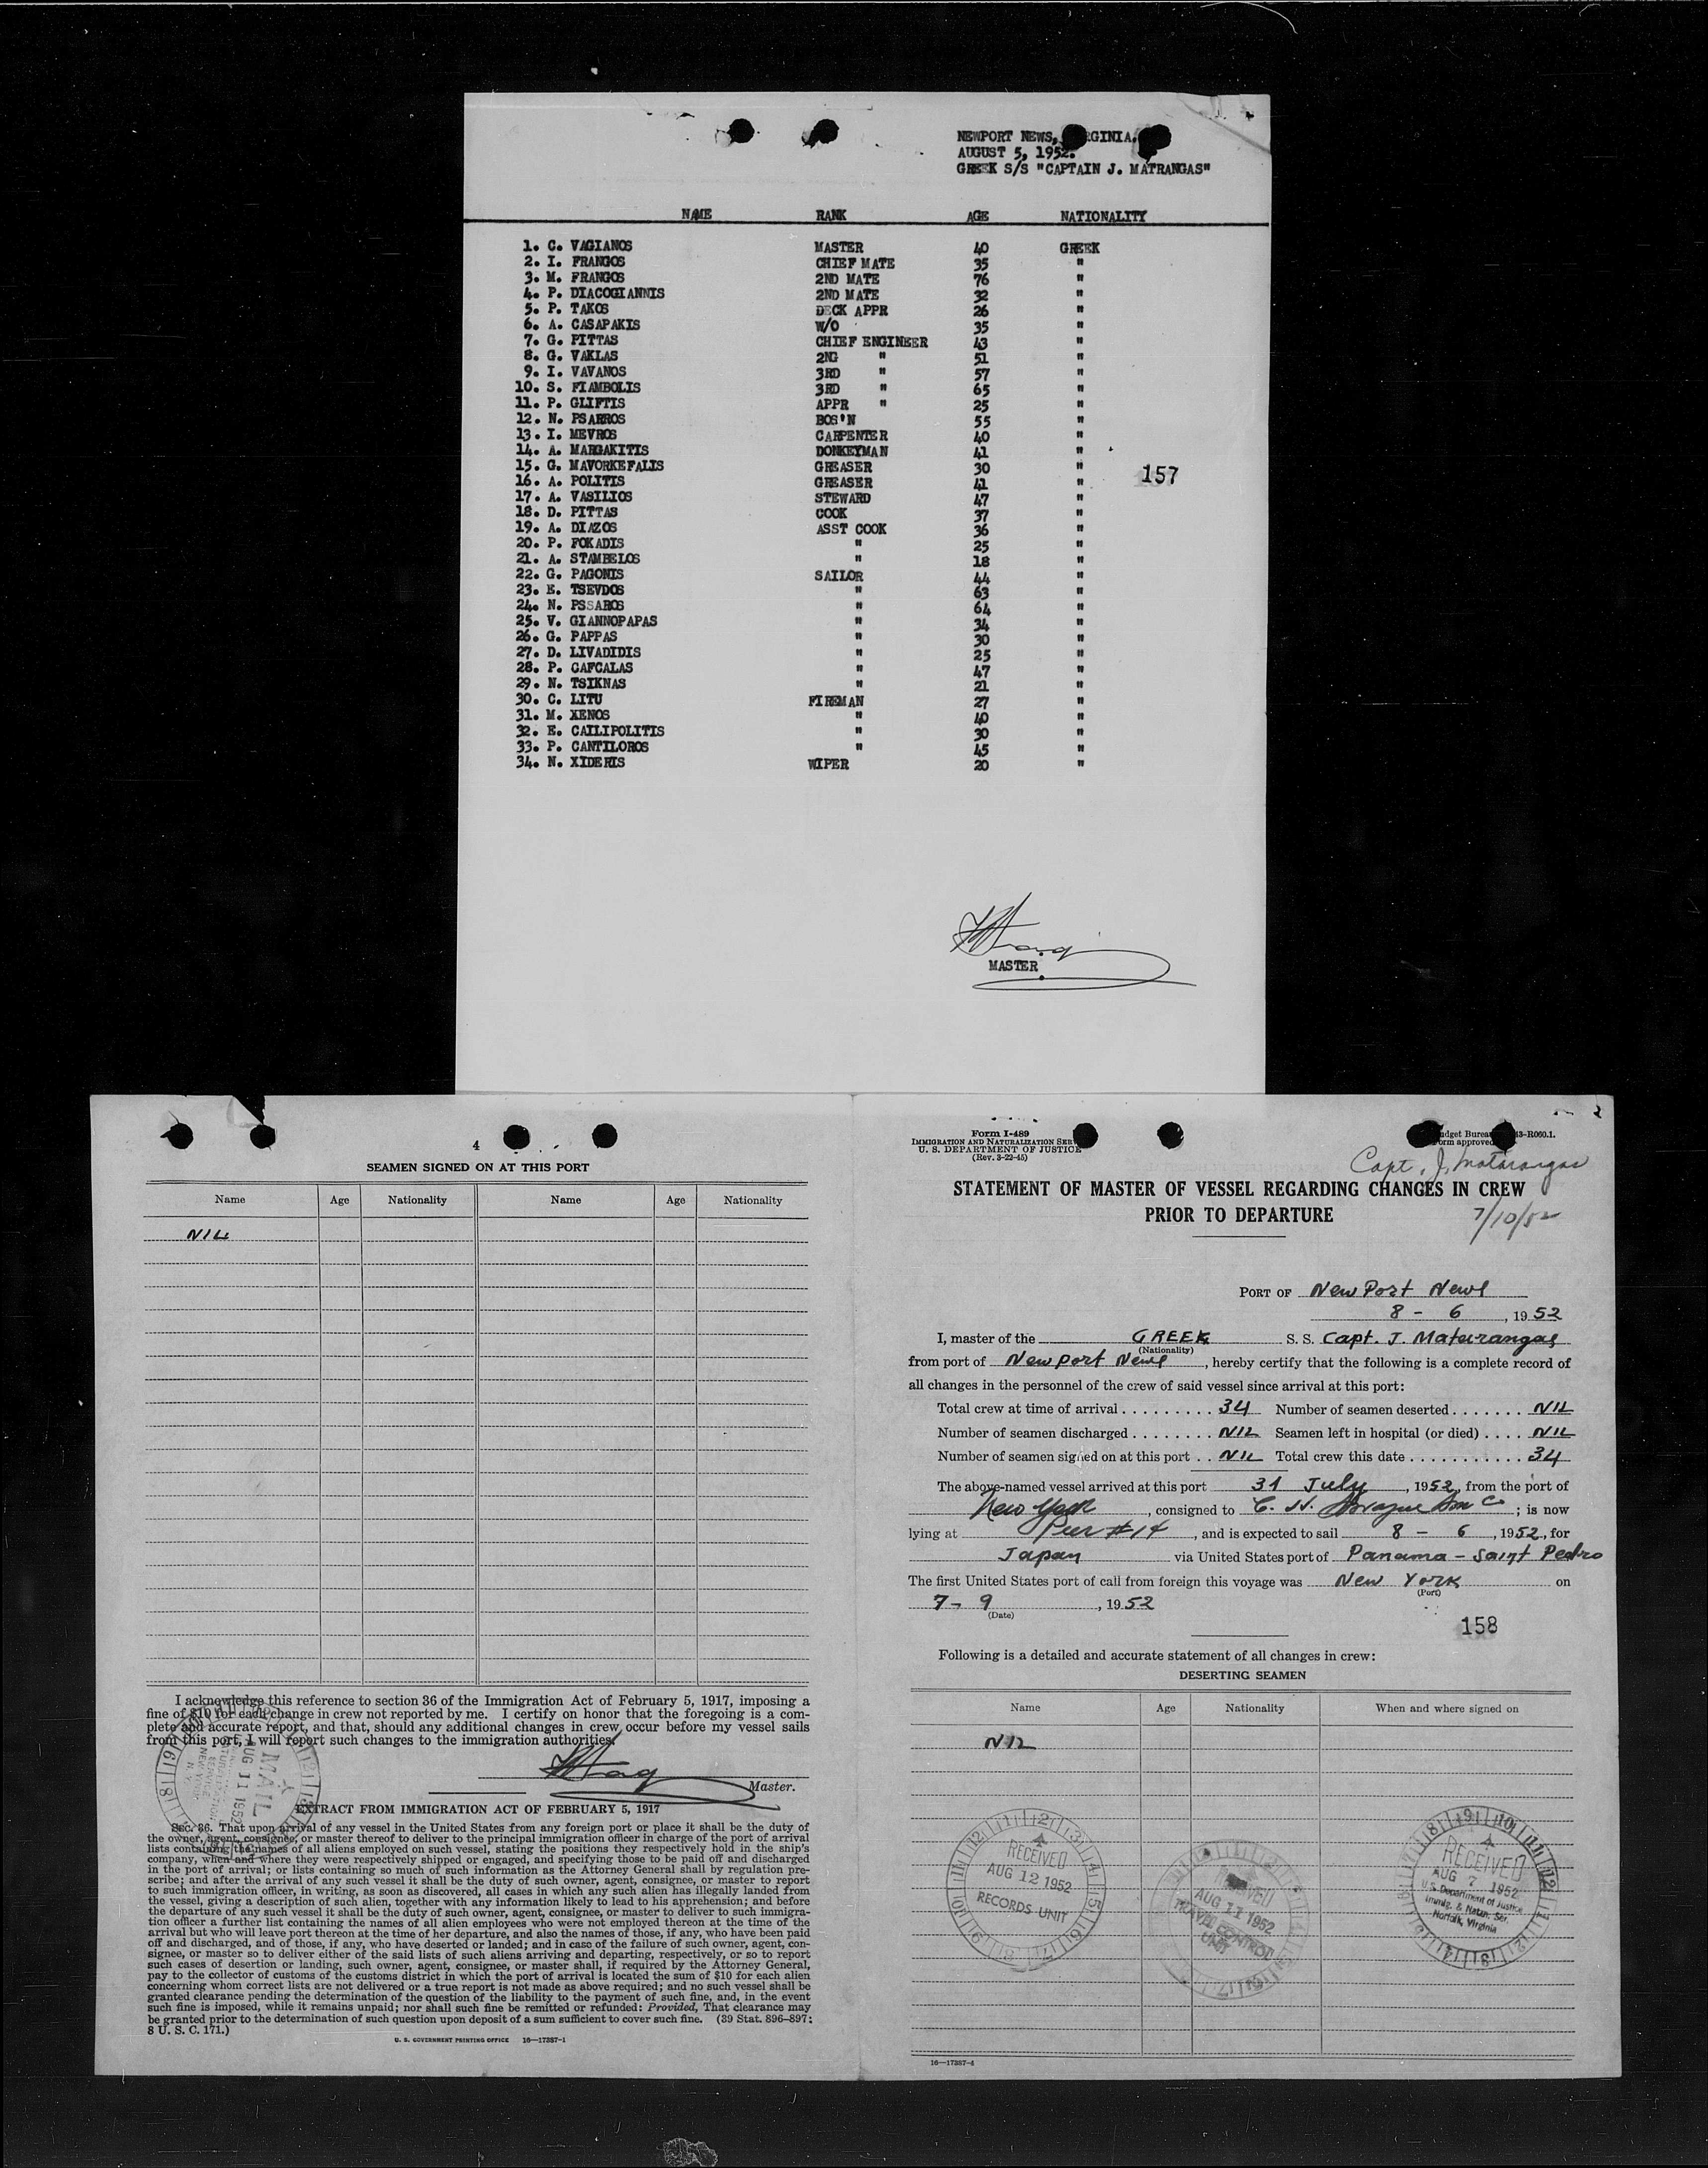 NEWPORT NEWS, VIRGINIA.
AUGUST 5, 1952.
GREEK S/S "CAPTAIN J. MATRANGAS"
NAME RANK AGE NATIONALITY
1. C. VAGIANOS MASTER 40 GREEK
2. I. FRANGOS CHIEF MATE 35 "
3. M. FRANGOS 2ND MATE 76 "
4. P. DIACOGIANNIS 2ND MATE 32 "
5. P. TAKOS DECK APPR 26 "
6. A. CASAPAKIS W/O 35 "
7. G. PITTAS CHIEF ENGINEER 43 "
8. G. VAKLAS 2NG " 51 "
9. I. VAVANOS 3RD " 57 "
10. S. FIAMBOLIS 3RD " 65 "
11. P. GLIFTIS APPR " 25 "
12. N. PSARROS BOS'N 55 "
13. I. MEVROS CARPENTER 40 "
14. A. MARGAKITIS DONKEYMAN 41 "
15. G. MAVORKEFALIS GREASER 30 "
157
16. A. POLITIS GREASER 41 "
17. A. VASILIOS STEWARD 47 "
18. D. PITTAS COOK 37 "
19. A. DIAZOS ASST COOK 36 "
20. P. FOKADIS " 25 "
21. A. STAMBELOS " 18 "
22. G. PAGONIS SAILOR 44 "
23. E. TSEVDOS " 63 "
24. N. PSSAROS " 64 "
25. V. GIANNOPAPAS " 34 "
26. G. PAPPAS " 30 "
27. D. LIVADIDIS " 25 "
28. P. CAFCALAS " 47 "
29. N. TSIKNAS " 21 "
30. C. LITU FIREMAN 27 "
31. M. XENOS " 40 "
32. E. CAILIPOLITIS " 30 "
33. P. CANTILOROS " 45 "
34. N. XIDERIS WIPER 20 "
MASTER
4
SEAMEN SIGNED ON AT THIS PORT
Name Age Nationality Name Age Nationality
NIL
I acknowledge this reference to section 36 of the Immigration Act of February 5, 1917, imposing a
fine of $10 for each change in crew not reported by me. I certify on honor that the foregoing is a com-
plete and accurate report, and that, should any additional changes in crew occur before my vessel sails
from this port, I will report such changes to the immigration authorities.
Master.
MAIL
AUG 11 1952
EXTRACT FROM IMMIGRATION ACT OF FEBRUARY 5, 1917
Sec. 36. That upon arrival of any vessel in the United States from any foreign port or place it shall be the duty of
the owner, agent, consignee, or master thereof to deliver to the principal immigration officer in charge of the port of arrival
lists containing the names of all aliens employed on such vessel, stating the positions they respectively hold in the ship's
company, when and where they were respectively shipped or engaged, and specifying those to be paid off and discharged
in the port of arrival; or lists containing so much of such information as the Attorney General shall by regulation pre-
scribe; and after the arrival of any such vessel it shall be the duty of such owner, agent, consignee, or master to report
to such immigration officer, in writing, as soon as discovered, all cases in which any such alien has illegally landed from
the vessel, giving a description of such alien, together with any information likely to lead to his apprehension; and before
the departure of any such vessel it shall be the duty of such owner, agent, consignee, or master to deliver to such immigra-
tion officer a further list containing the names of all alien employees who were not employed thereon at the time of the
arrival but who will leave port thereon at the time of her departure, and also the names of those, if any, who have been paid
off and discharged, and of those, if any, who have deserted or landed; and in case of the failure of such owner, agent, con-
signee, or master so to deliver either of the said lists of such aliens arriving and departing, respectively, or so to report
such cases of desertion or landing, such owner, agent, consignee, or master shall, if required by the Attorney General,
pay to the collector of customs of the customs district in which the port of arrival is located the sum of $10 for each alien
concerning whom correct lists are not delivered or a true report is not made as above required; and no such vessel shall be
granted clearance pending the determination of the question of the liability to the payment of such fine, and, in the event
such fine is imposed, while it remains unpaid; nor shall such fine be remitted or refunded: Provided, That clearance may
be granted prior to the determination of such question upon deposit of a sum sufficient to cover such fine. (39 Stat. 896-897;
8 U. S. C. 171.)
U. S. GOVERNMENT PRINTING OFFICE 16—17387-1
Form I-489
IMMIGRATION AND NATURALIZATION SER
U. S. DEPARTMENT OF JUSTICE
(Rev. 3-22-45)
dget Bureau 43-R060.1.
orm approved
Capt. J. Matarangas
STATEMENT OF MASTER OF VESSEL REGARDING CHANGES IN CREW
PRIOR TO DEPARTURE
7/10/52
PORT OF NewPort News
8 - 6, 1952
I, master of the GREEK S. S. Capt. J. Matarangas
(Nationality)
from port of Newport News, hereby certify that the following is a complete record of
all changes in the personnel of the crew of said vessel since arrival at this port:
Total crew at time of arrival 34 Number of seamen deserted NIL
Number of seamen discharged NIL Seamen left in hospital (or died) NIL
Number of seamen signed on at this port NIL Total crew this date 34
The above-named vessel arrived at this port 31 July, 1952, from the port of
New York, consigned to C. H. Sprague Son Co; is now
lying at Pier #14, and is expected to sail 8 - 6, 1952, for
Japan via United States port of Panama - Saint Pedro
The first United States port of call from foreign this voyage was New York on
(Port)
7 - 9, 1952
(Date)
158
Following is a detailed and accurate statement of all changes in crew:
DESERTING SEAMEN
Name Age Nationality When and where signed on
NIL
RECEIVED
AUG 12 1952
RECORDS UNIT
RECEIVED
AUG 11 1952
TRAVEL CONTROL
UNIT
RECEIVED
AUG 7 1952
U.S. Department of Justice
Immig. & Natzn. Ser.
Norfolk, Virginia
16—17387-4